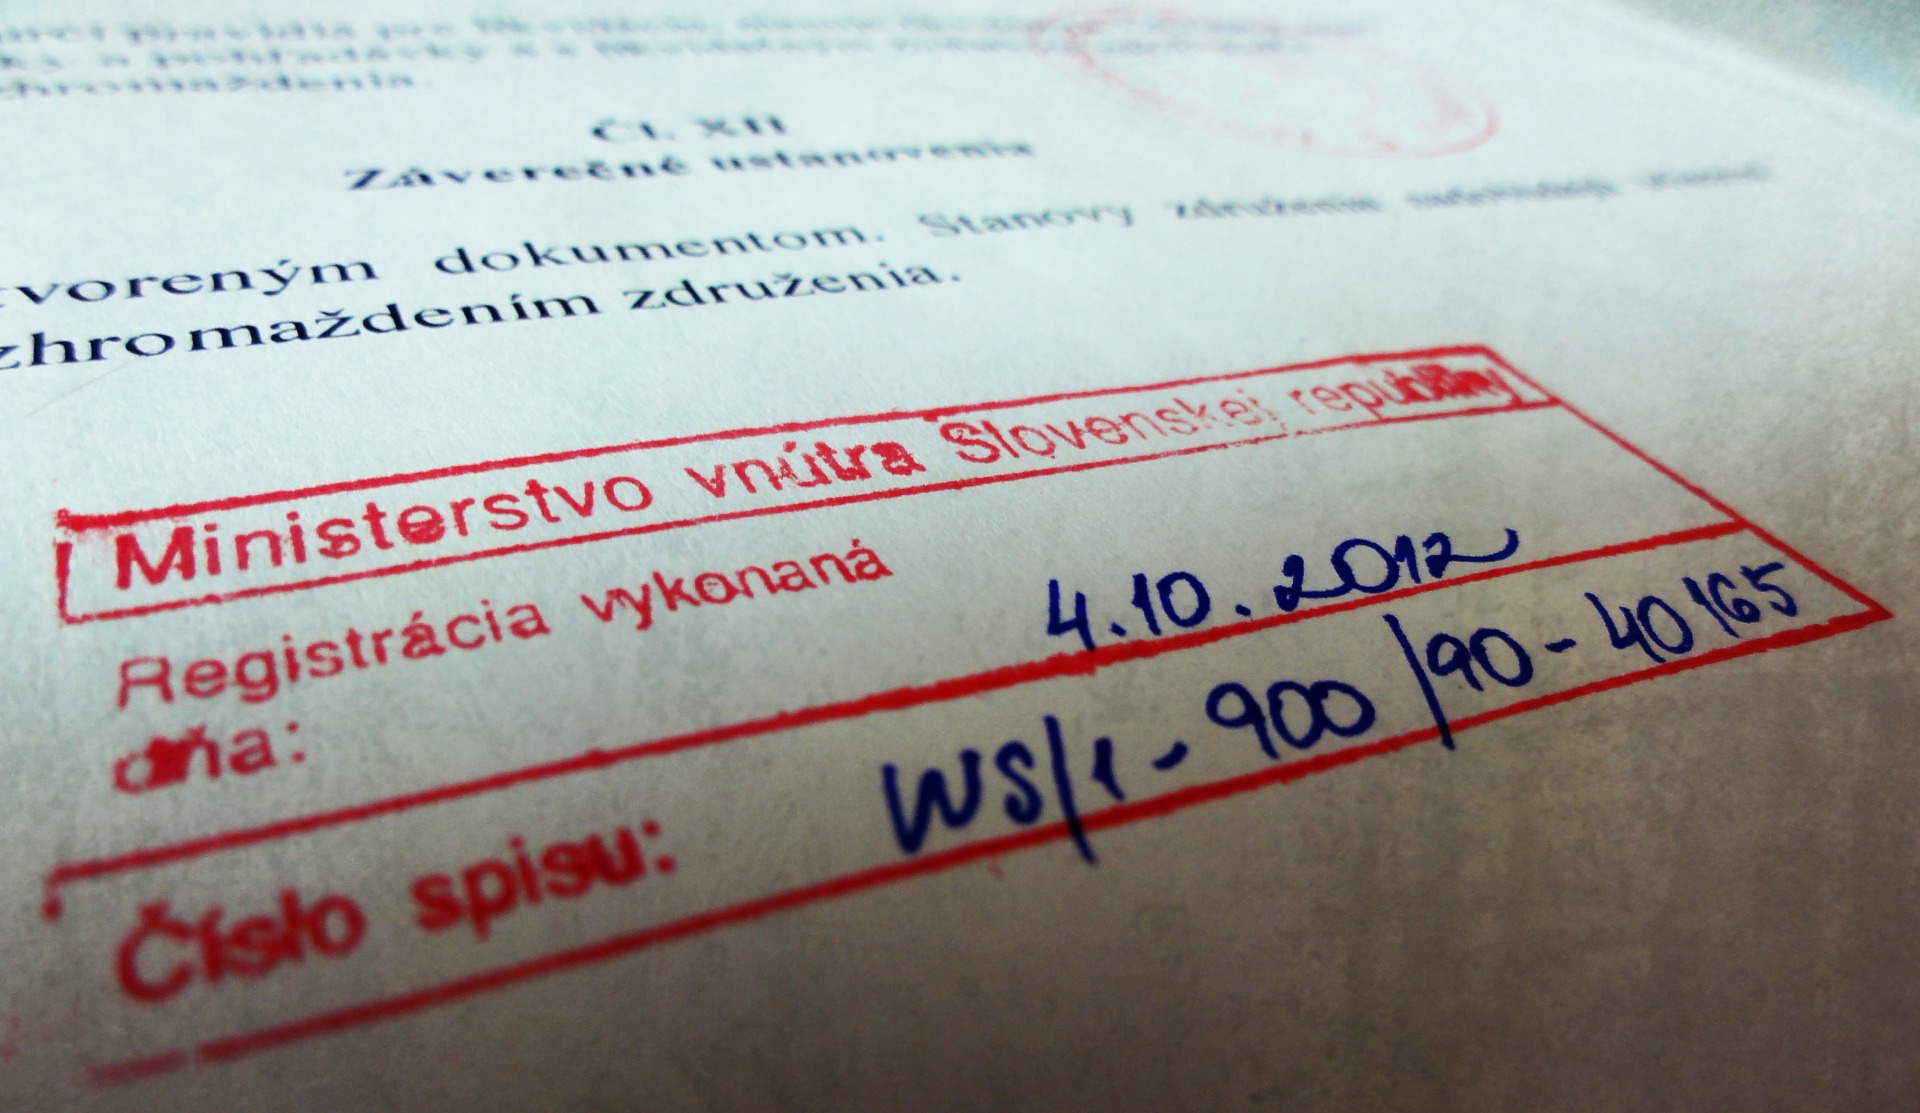 zhromaždenia.
Čl. XII
Záverečné ustanovenia
tvoreným dokumentom. Stanovy združenia
zhromaždením združenia.
Ministerstvo vnútra Slovenskej republiky
Registrácia vykonaná
dňa: 4.10.2012
Číslo spisu: VVS/1-900/90-40165